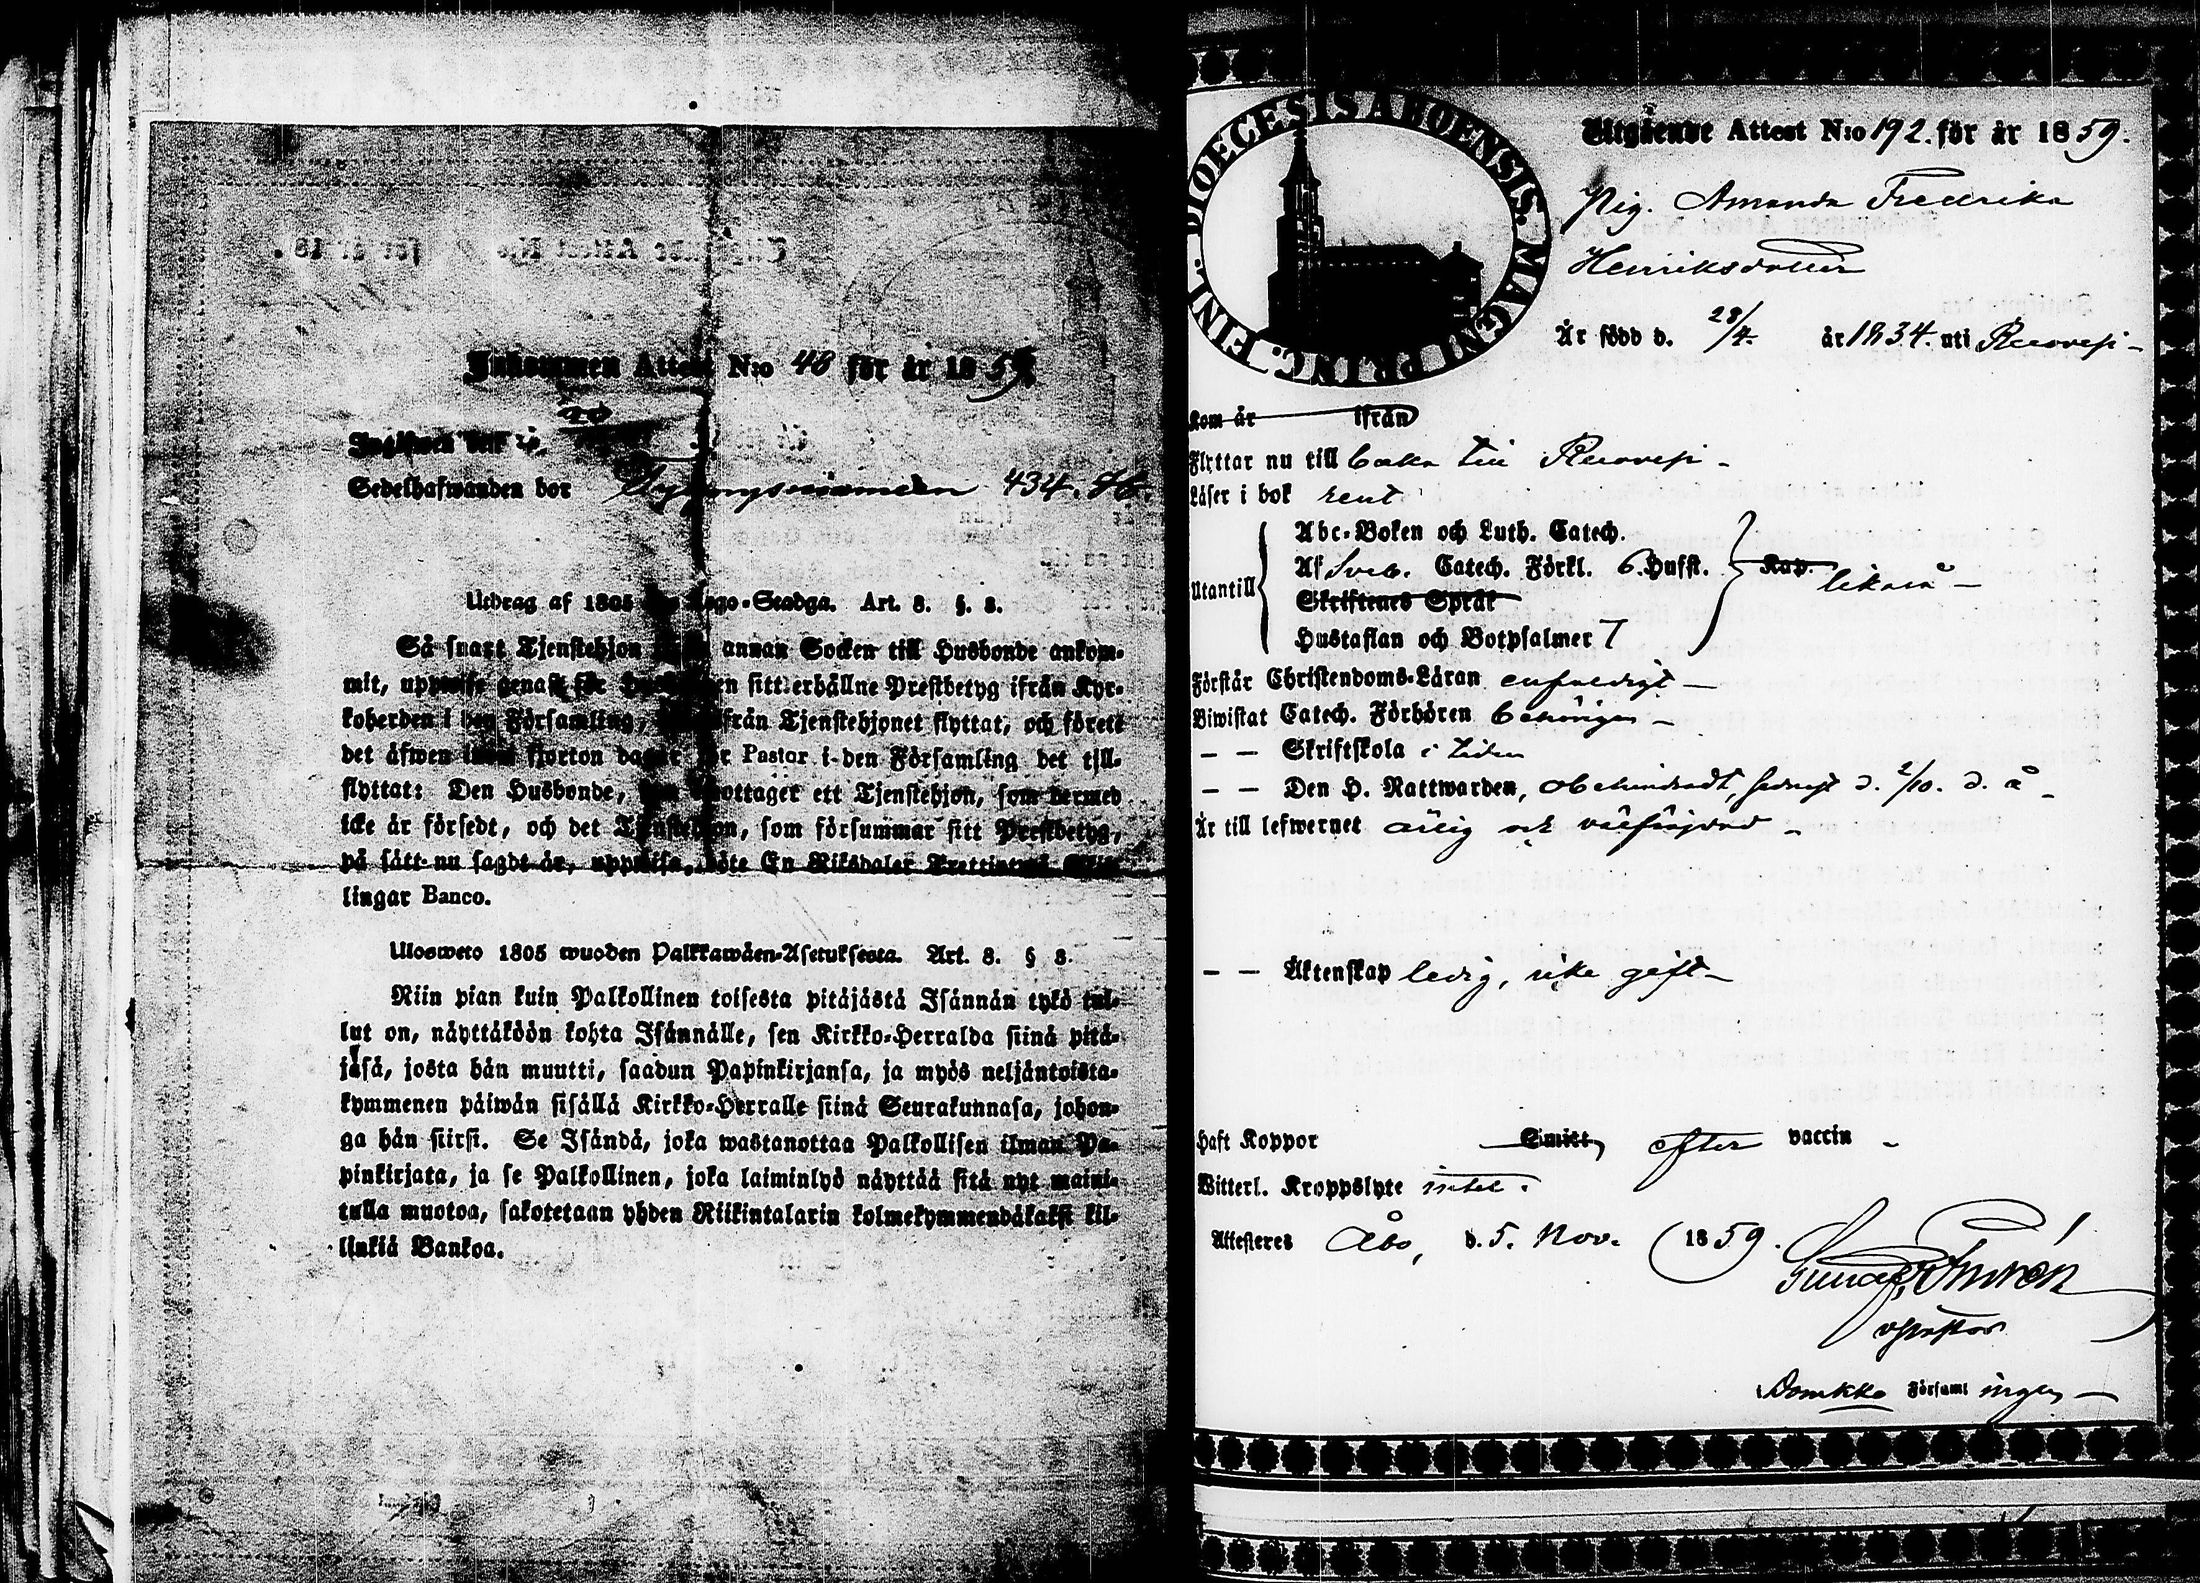 Inkommen Attest N:o 48 för år 1859
40
Sedelhafwanden bor 434. 76.
Utdrag af 1805 Lego-Stadga. Art. 8. §. 8.
Så snart Tjenstehjon annan Socken till Husbonde ankom-
mit, uppwise genast för sitt erhållne Prestbetyg ifrån Kyr-
koherden i den Församling, ifrån Tjenstehjonet flyttat, och förete
det äfwen inom fjorton dagar för Pastor i den Församling det till-
flyttat: Den Husbonde, som mottager ett Tjenstehjon, som dermed
icke är försedt, och det Tjenstehjon, som försummar sitt Prestbetyg,
på sätt nu sagdt är, uppwisa, böte En Riksdaler Trettiotwå Skil-
lingar Banco.
Ulosweto 1805 wuoden Palkkawäen-Asetuksesta. Art. 8. § 8.
Niin pian kuin Palkollinen toisesta pitäjästä Isännän tykö tul-
lut on, näyttäköön kohta Isännälle, sen Kirkko-Herralda siinä pitä-
jäsä, josta hän muutti, saadun Papinkirjansa, ja myös neljäntoista-
kymmenen päiwän sisällä Kirkko-Herralle siinä Seurakunnasa, johon-
ga hän siirsi. Se Isändä, joka wastanottaa Palkollisen ilman Pa-
pinkirjata, ja se Palkollinen, joka laiminlyö näyttää sitä nyt maini-
tulla muotoa, sakotetaan yhden Riikintalarin kolmekymmendäkaksi kil-
linkiä Bankoa.
FINL. DIOECESIS ABOENSIS. MAGNI PRINC.
Utgående Attest N:o 192. för år 1859.
Pig. Amanda Fredrika
Henriksdotter
Är född d. 28/4. år 1834. uti Reso
Kom år ifrån
Flyttar nu till baka till
Läser i bok rent
Utantill
Abc-Boken och Luth. Catech.
Af Sveb. Catech. Förkl. 6. Hufst. Kap.
likaså
Skriftenes Språk
Hustaflan och Botpsalmer 7
Förstår Christendoms-Läran enfaldigt
Biwistat Catech. Förhören behörigen
— — Skriftskola i tiden
— — Den H. Nattwarden, obehindradt, sednast d. 2/10. d. å
Är till lefwernet ärlig och välfrejdad
— — Äktenskap ledig, icke gift
Haft Koppor Smitt, efter vaccin
Witterl. Kroppslyte intet.
Attesteras Åbo, d. 5. Nov. 1859.
Domkko Församlingen